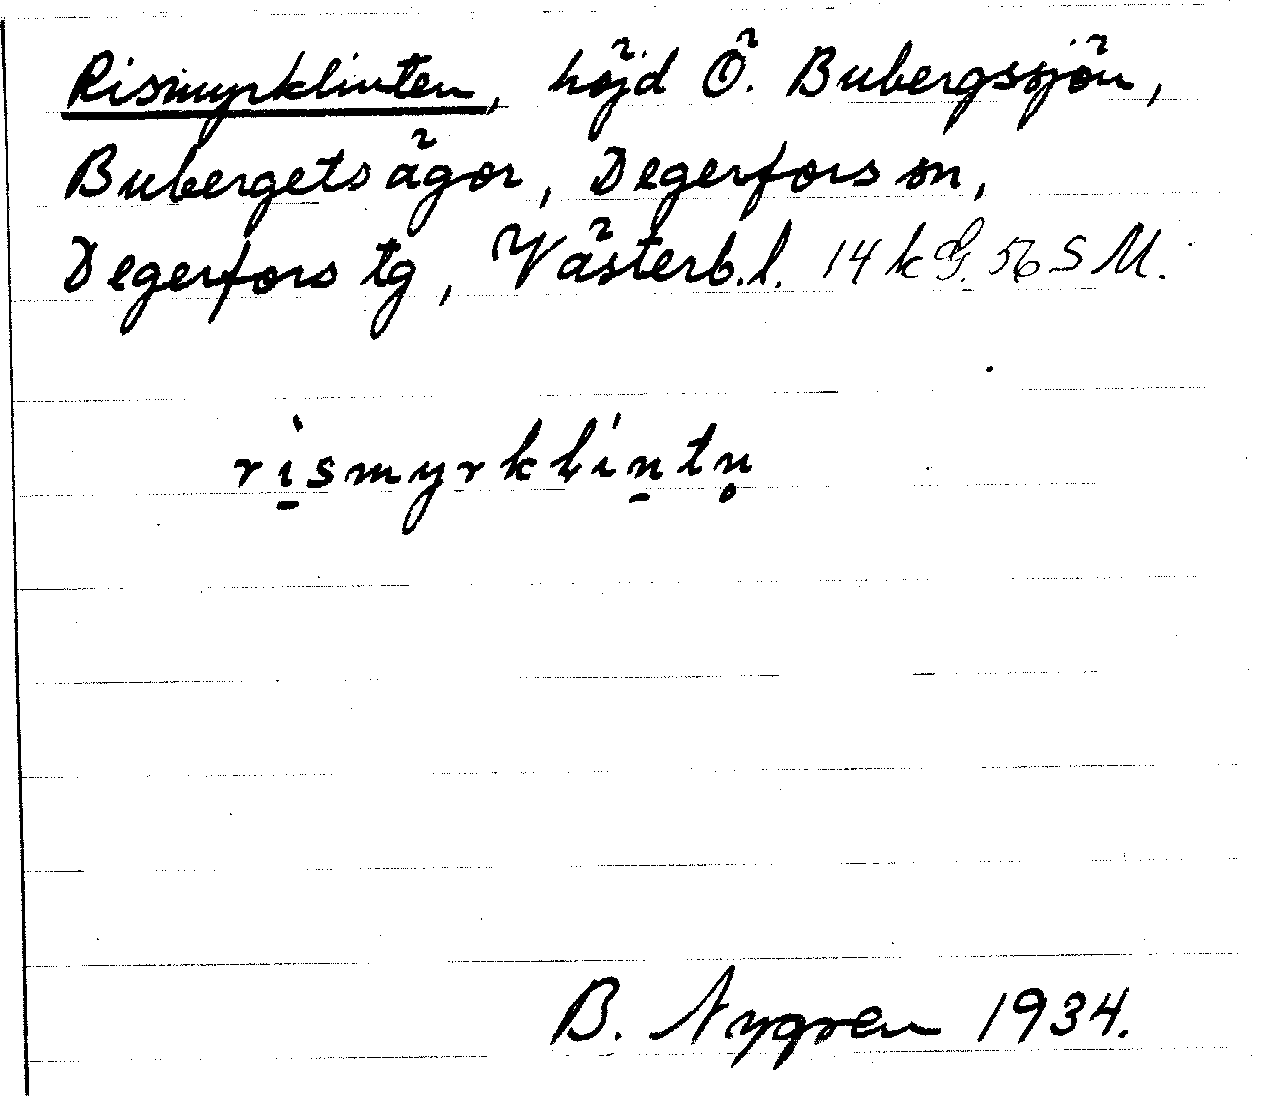 Rismyrklinten, höjd Ö. Bubergssjön,
Bubergets ägor, Degerfors sn,
Degerfors tg, Västerb.l. 14 k G. 56 S M.
rismyrklintn̥
B. Nygren 1934.